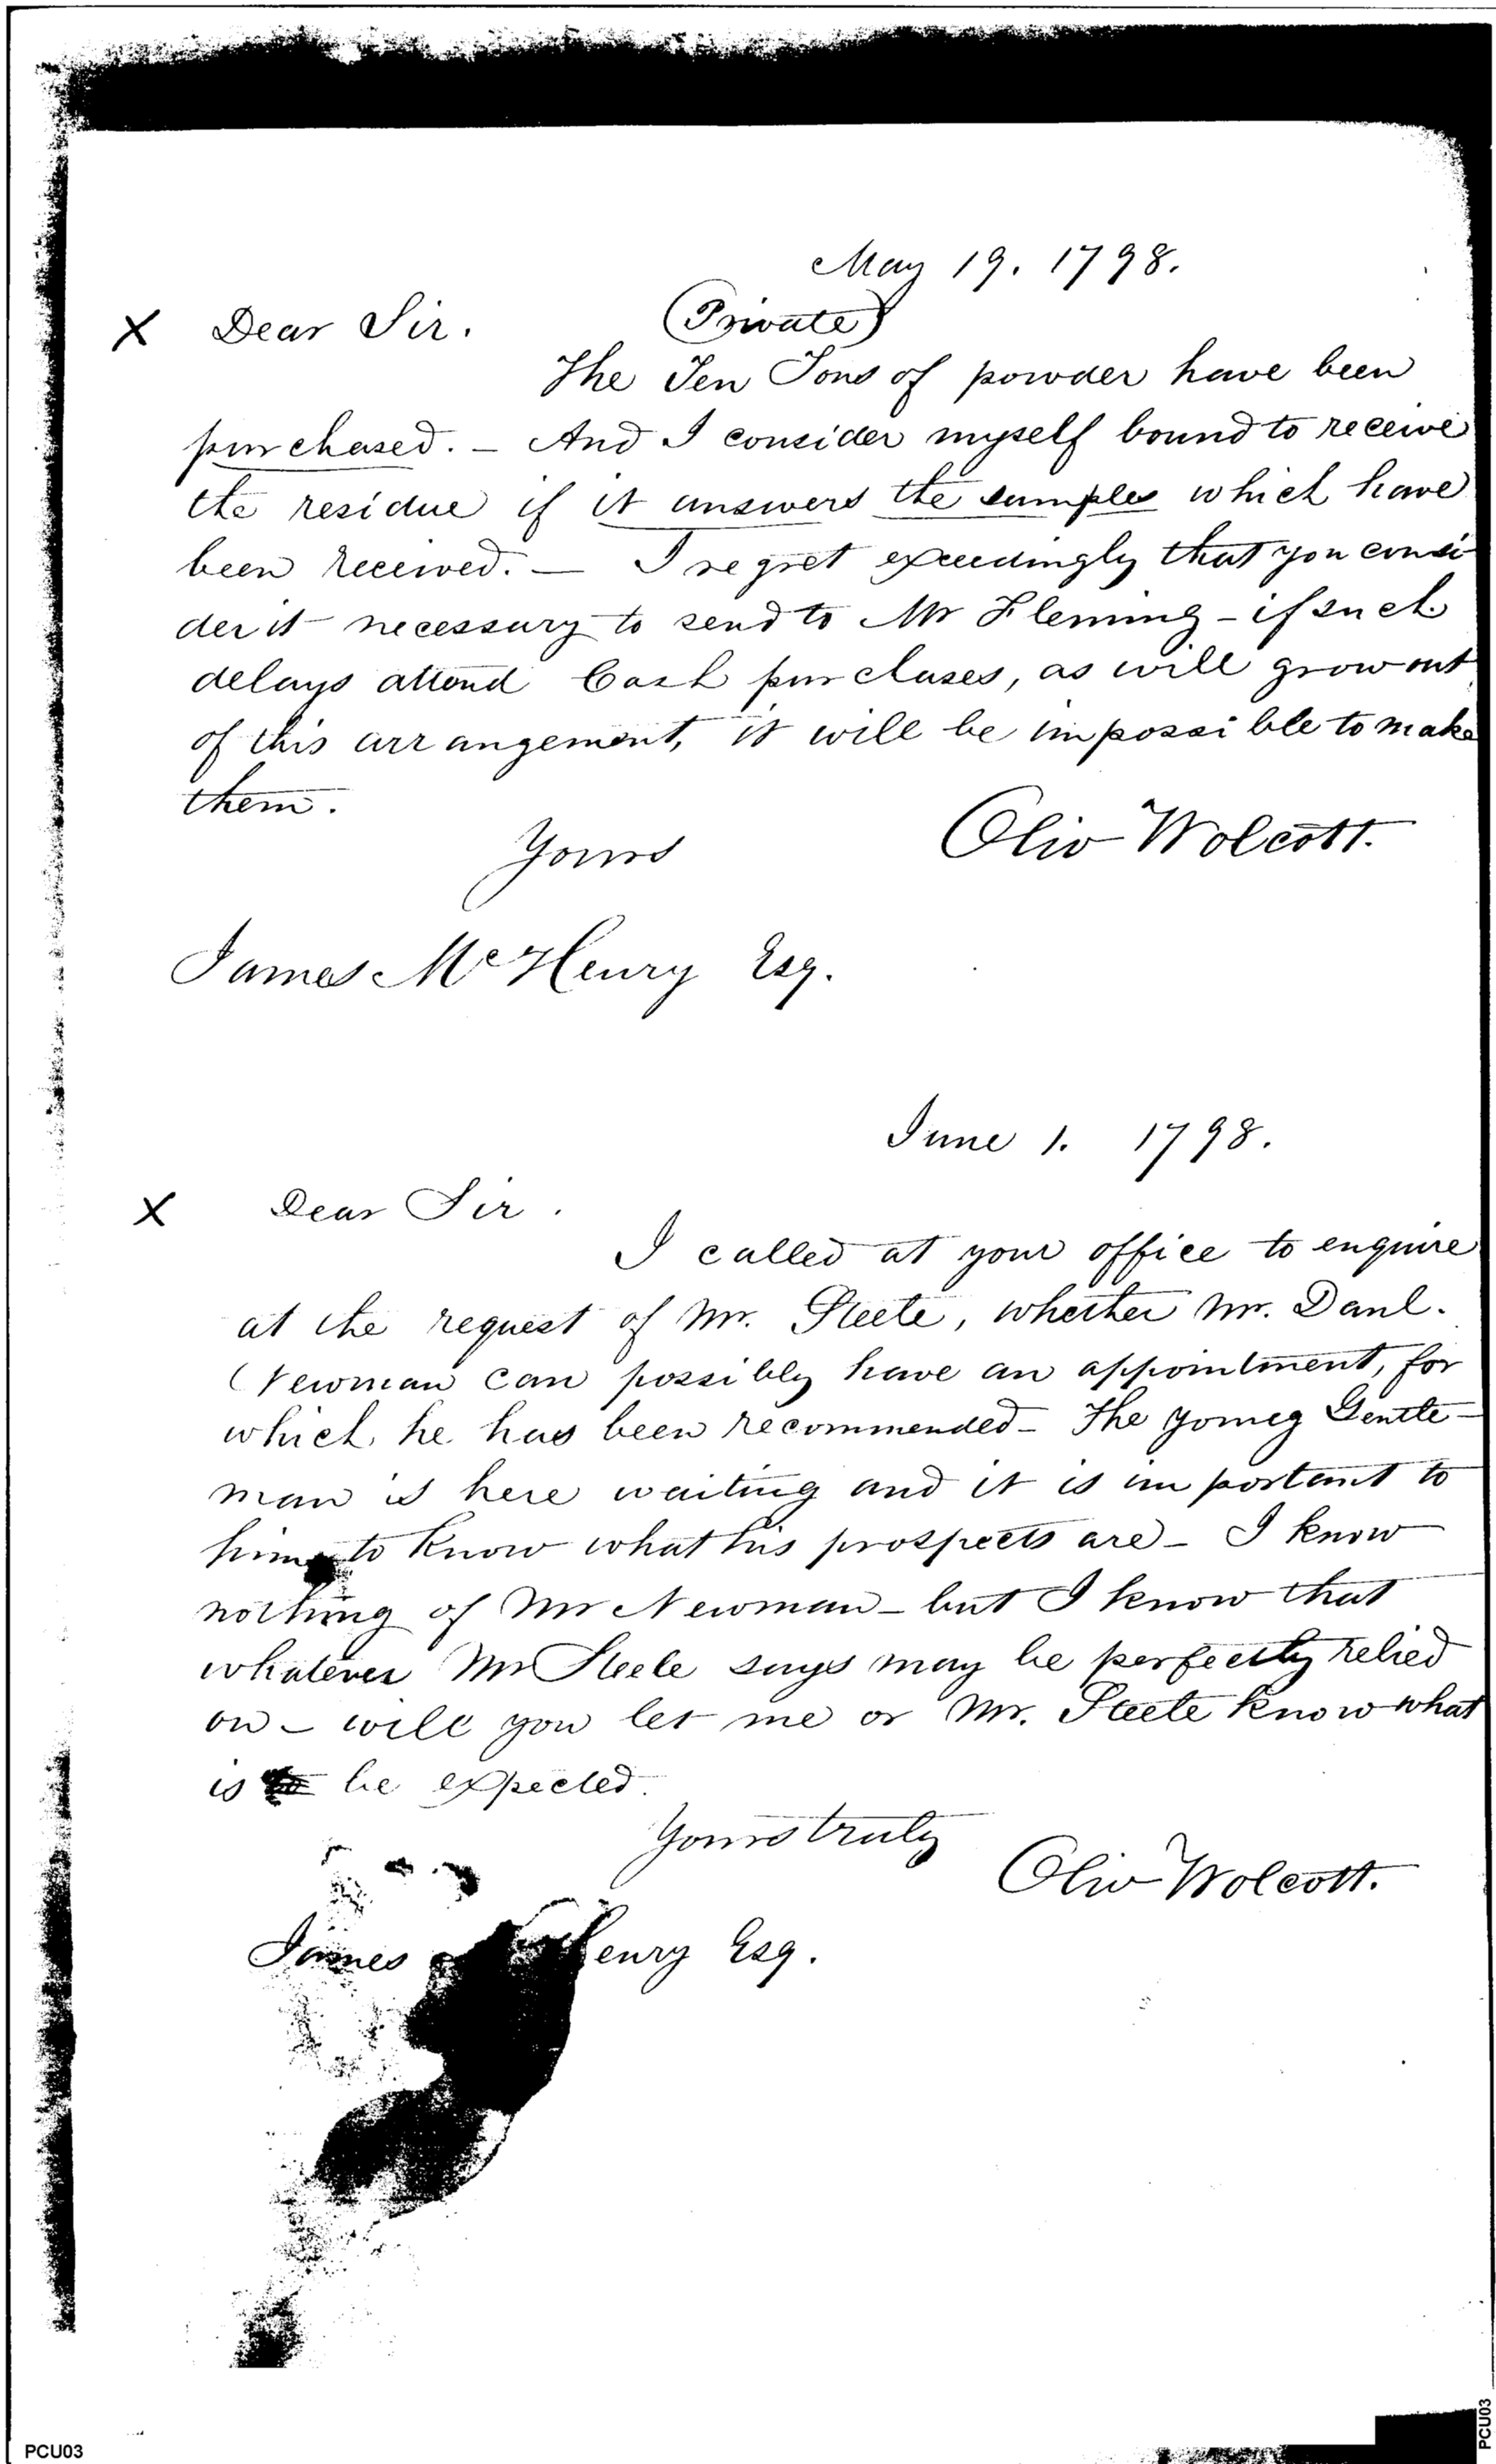 May 19. 1798.
X Dear Sir. (Private)
The Ten Tons of powder have been
purchased. – And I consider myself bound to receive
the residue if it answers the samples which have
been received. — I regret exceedingly that you consi
der it necessary to send to Mr Fleming – if such
delays attend Cash purchases, as will grow out
of this arrangement, it will be impossible to make
them.
Yours Oliv Wolcott.
James McHenry Esq.
June 1. 1798.
X Dear Sir.
I called at your office to enquire
at the request of Mr. Steele, whether Mr. Danl.
Newman can possibly have an appointment, for
which he has been recommended – The young Gentle-
man is here waiting and it is important to
him to know what his prospects are – I know
nothing of Mr Newman – but I know that
whatever Mr Steele says may be perfectly relied
on – will you let me or Mr. Steele know what
is to be expected.
Yours truly
Oliv Wolcott.
James Henry Esq.
PCU03
PCU03